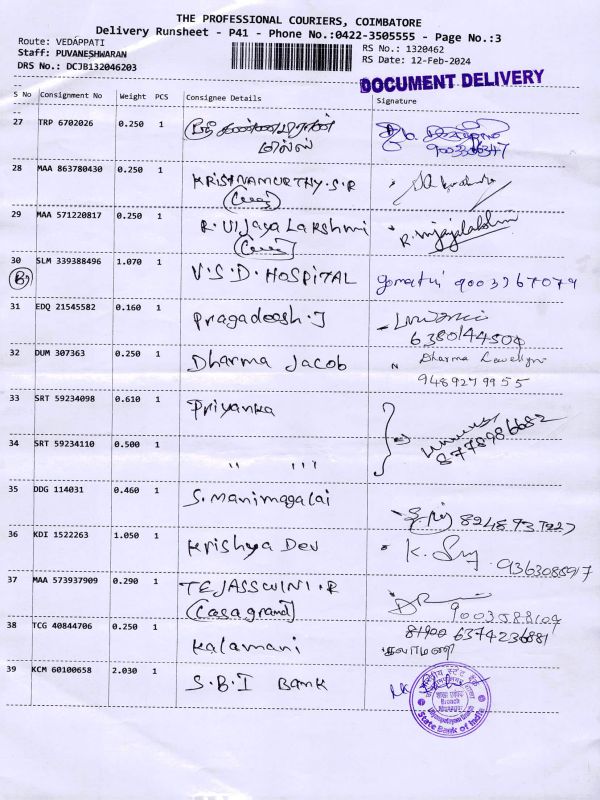 THE PROFESSIONAL COURIERS, COIMBATORE
Delivery Runsheet - P41 - Phone No.:0422-3505555 - Page No.:3
Route: VEDAPPATI
RS No.: 1320462
Staff: PUVANESHWARAN
RS Date: 12-Feb-2024
DRS No.: DCJB132046203
DOCUMENT DELIVERY
S No Consignment No Weight PCS Consignee Details Signature
27 TRP 6702026 0.250 1
மில்ஸ்
28 MAA 863780430 0.250 1 KRISHNAMURTHY.S.R
29 MAA 571220817 0.250 1 R. Vijaya Lakshmi R. Vijayalakshmi
30 SLM 339388496 1.070 1 V.S.D. HOSPITAL gomathi 9003967079
31 EDQ 21545582 0.160 1 Pragadeesh.J
6380144504
32 DUM 307363 0.250 1 Dharma Jacob Dharma
9489279955
33 SRT 59234098 0.610 1 Priyanka
8778986682
34 SRT 59234110 0.500 1 " "
35 DDG 114031 0.460 1 S. Manimagalai
36 KDI 1522263 1.050 1 Krishya Dev K.
9363088917
37 MAA 573937909 0.290 1 TEJASSWINI.R
(Casagrand)
38 TCG 40844706 0.250 1 Kalamani 6374236881
கலாமணி
39 KCM 60100658 2.030 1 S.B.I Bank
State Bank of India